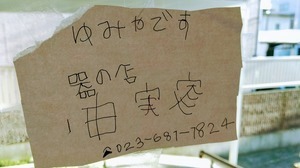 ゆみやです
器の店
実
☎023-681-7824